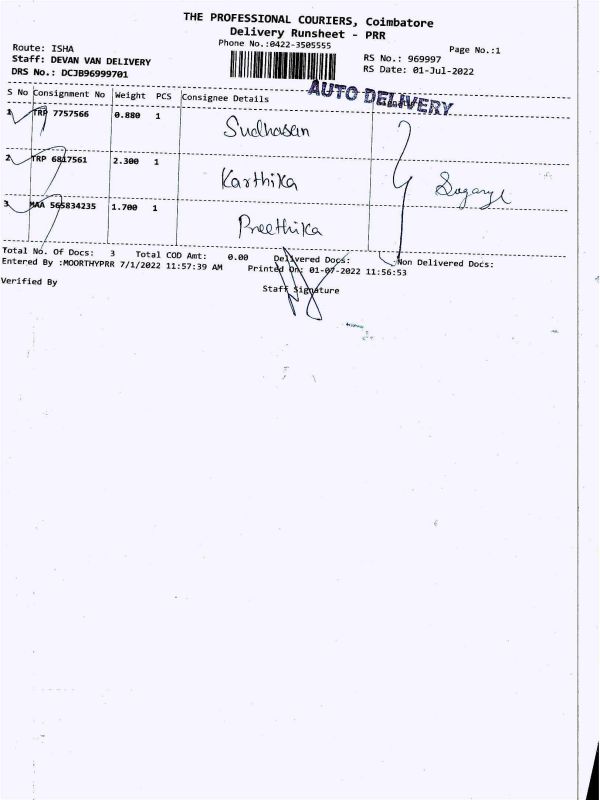 THE PROFESSIONAL COURIERS, Coimbatore
Delivery Runsheet - PRR
Phone No.:0422-3505555
Page No.:1
Route: ISHA
RS No.: 969997
Staff: DEVAN VAN DELIVERY
RS Date: 01-Jul-2022
DRS No.: DCJB96999701
AUTO DELIVERY
S No Consignment No Weight PCS Consignee Details
1 TRP 7757566 0.880 1 Sudhasan
2 TRP 6817561 2.300 1 Karthika
3 MAA 565834235 1.700 1 Preethika
Total No. Of Docs: 3 Total COD Amt: 0.00 Delivered Docs: Non Delivered Docs:
Entered By :MOORTHYPRR 7/1/2022 11:57:39 AM Printed On: 01-07-2022 11:56:53
Verified By
Staff Signature